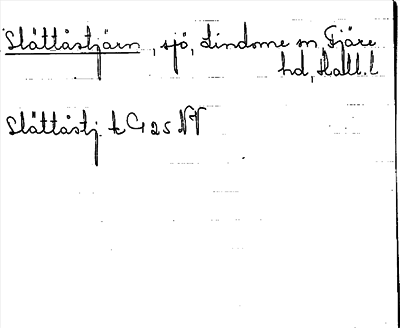 Slåttåstjärn, sjö, Lindome sn, Fjäre
hd, Hall. l
Slåttåstj tC 25 NV